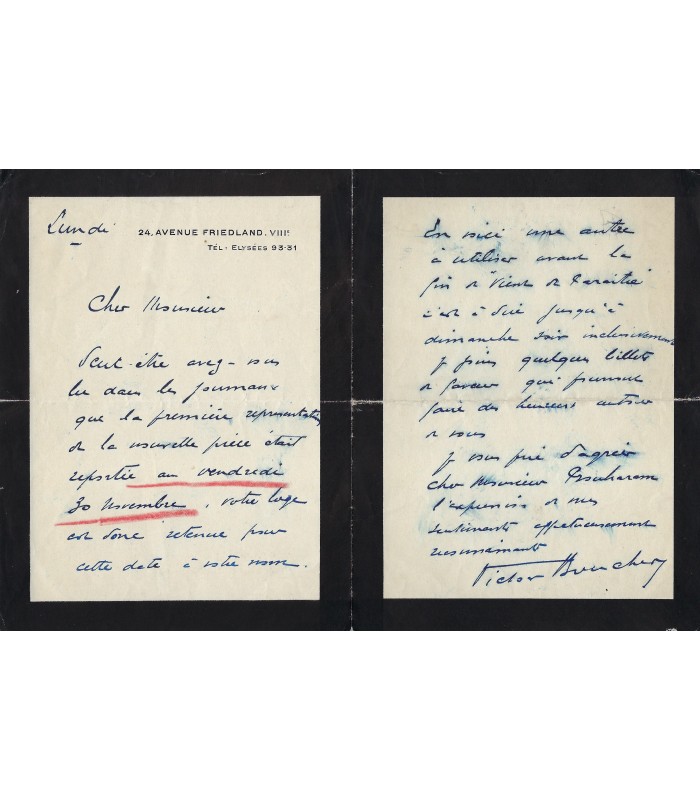 Lundi
24, AVENUE FRIEDLAND. VIIIe
TÉL: ELYSÉES 93-31
Cher Monsieur
Peut-être avez-vous
lu dans les journaux
que la première représentation
de la nouvelle pièce était
reportée au vendredi
30 novembre, votre loge
est donc retenue pour
cette date à votre nom.
En voici une autre
à utiliser avant la
fin de "Vient de Paraître"
c'est à dire jusqu'à
dimanche soir inclusivement
je joins quelques billets
de faveur qui pourront
faire des heureux autour
de vous
je vous prie d'agréer
cher Monsieur
l'expression de mes
sentiments affectueusement
reconnaissants
Victor Boucher